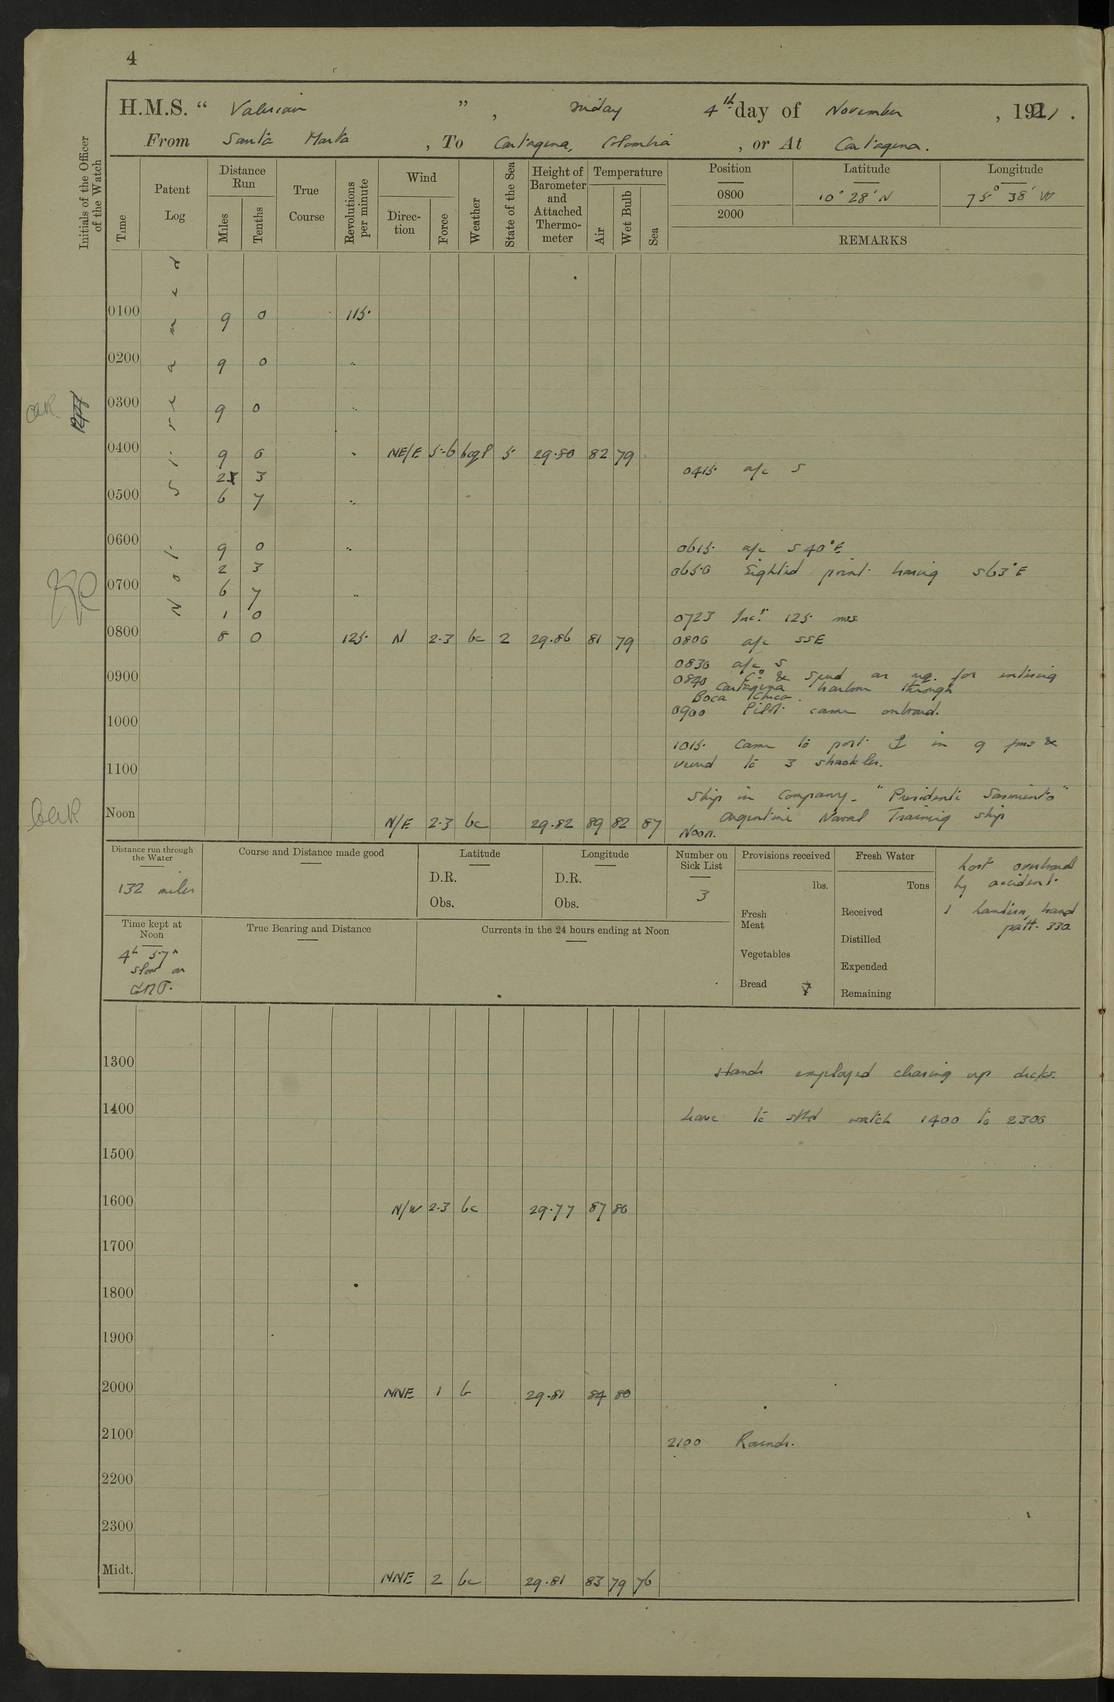 4
H.M.S. "Valerian", Friday 4th day of November, 1921.
From Santa Marta, To Cartagena, Colombia, or At Cartagena.
Initials of the Officer of the Watch
Time
Patent Log
Distance Run
Miles
Tenths
True Course
Revolutions per minute
Wind
Direction
Force
Weather
State of the Sea
Height of Barometer and Attached Thermometer
Temperature
Air
Wet Bulb
Sea
Position Latitude Longitude
0800 10° 28' N 75° 38' W
2000
REMARKS
Not Streamed
0100 9 0 115.
0200 9 0 "
0300 9 0 "
0400 9 0 " NE/E 5-6 bcqp 5 29.80 82 79
2 3 0415. a/c S
0500 6 7 "
0600 9 0 " 0615. a/c S 40°E
2 3 0650 Sighted point bearing S63°E
0700 6 7 "
1 0 0723 Incd. 125. revs
0800 8 0 125. N 2.3 bc 2 29.86 81 79 0800 a/c SSE
0830 a/c S
0900 0840 Co. & Speed as req. for entering
Cartagena harbour through
Boca Chica.
0900 Pilot came onboard.
1000
1015. Came to port ⚓ in 9 fms &
veered to 3 shackles.
1100
Ship in Company. "Presidente Sarmiento"
Argentine Naval Training Ship
Noon N/E 2.3 bc 29.82 89 82 87 Noon.
Distance run through the Water
132 miles
Course and Distance made good
Latitude
D.R.
Obs.
Longitude
D.R.
Obs.
Number on Sick List
3
Provisions received
lbs.
Fresh Meat
Vegetables
Bread
Fresh Water
Tons
Received
Distilled
Expended
Remaining
Lost overboard
by accident.
1 lantern, hand
patt. 330
Time kept at Noon
4h 57m
slow on
G.M.T.
True Bearing and Distance
Currents in the 24 hours ending at Noon
1300 Hands employed cleaning up decks.
1400 Leave to stbd watch 1400 to 2300
1500
1600 N/W 2.3 bc 29.77 87 80
1700
1800
1900
2000 NNE 1 b 29.81 84 80
2100 2100 Rounds.
2200
2300
Midt. NNE 2 bc 29.81 83 79 76